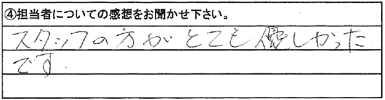 ④担当者についての感想をお聞かせ下さい。
スタッフの方がとても優しかった
です